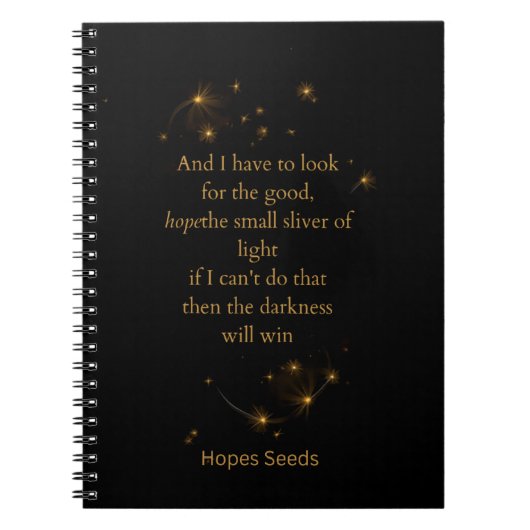 And I have to look
for the good,
hopethe small sliver of
light
if I can't do that
then the darkness
will win
Hopes Seeds